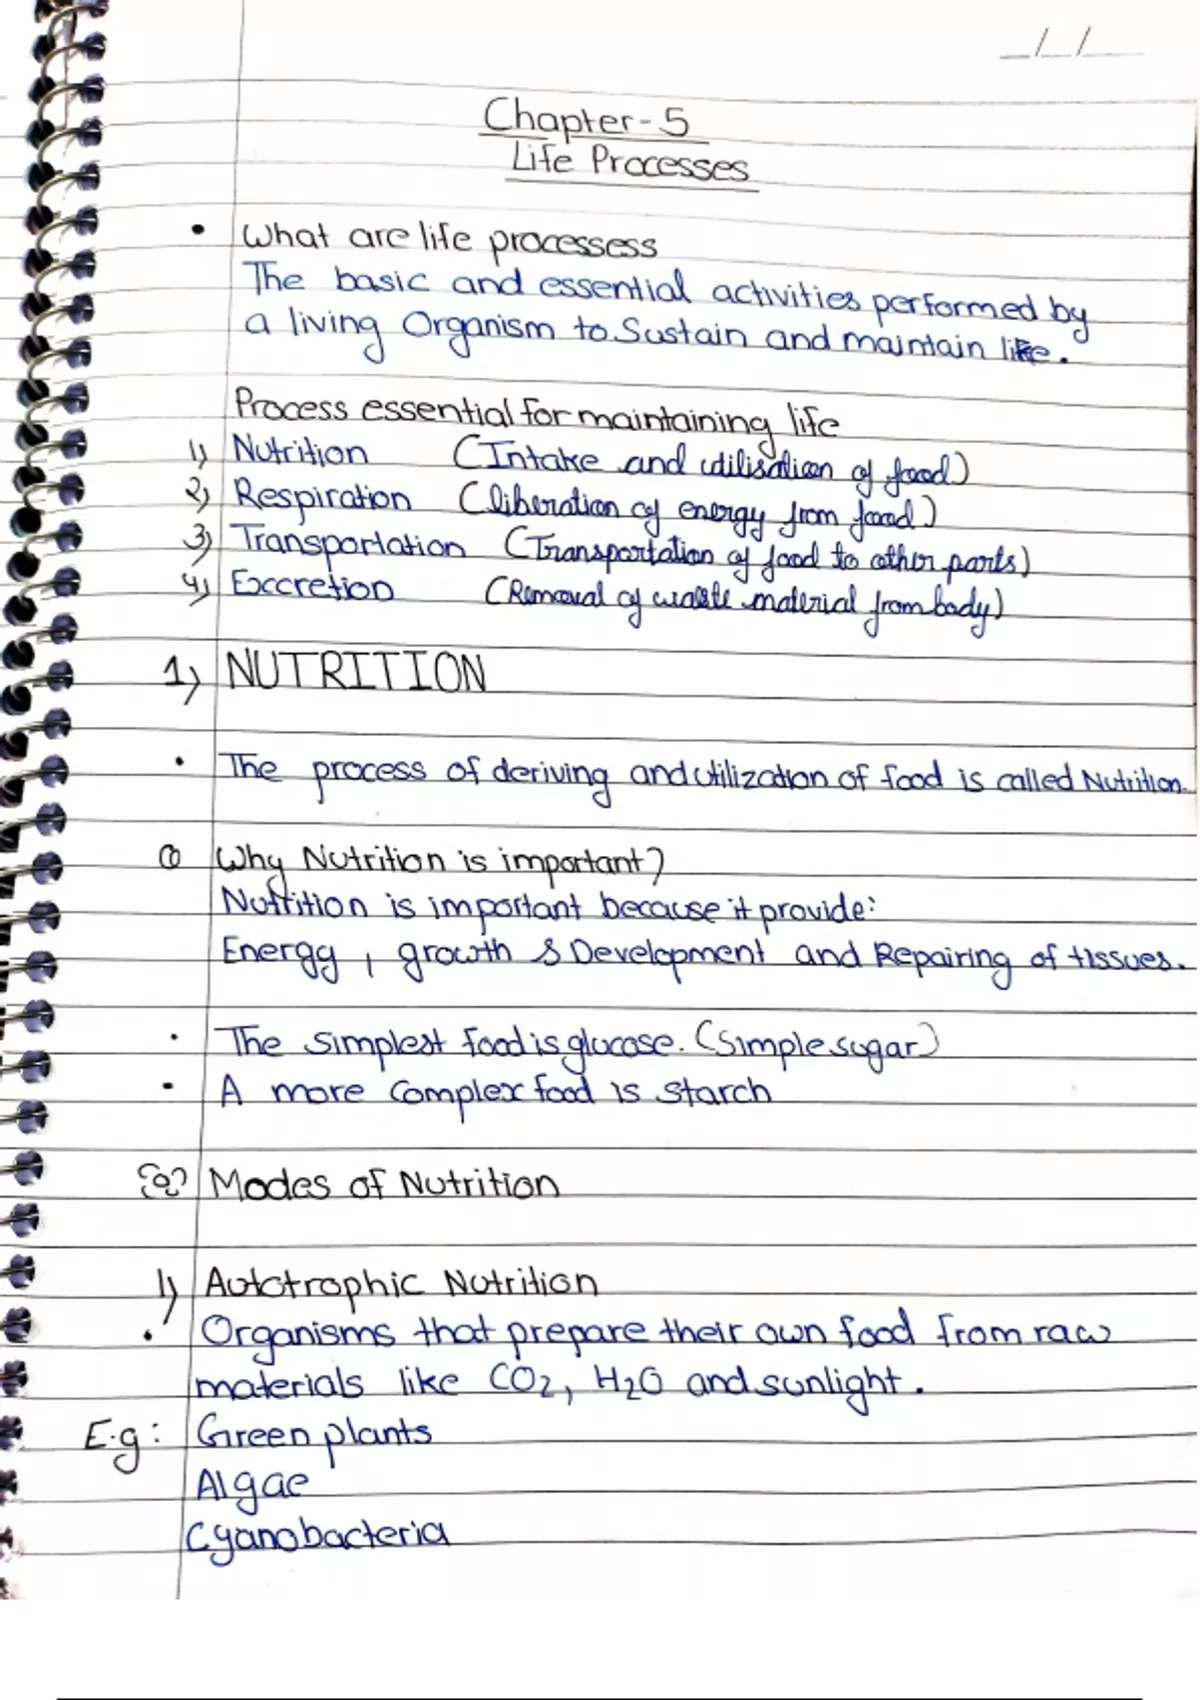 _/_/__
Chapter-5
Life Processes
• What are life processess
The basic and essential activities performed by
a living Organism to Sustain and maintain life.
Process essential for maintaining life
1) Nutrition (Intake and utilisation of food)
2) Respiration (liberation of energy from food)
3) Transportation (Transportation of food to other parts)
4) Exccretion (Removal of waste material from body)
1) NUTRITION
• The process of deriving and utilization of food is called Nutrition.
Why Nutrition is important?
Nutrition is important because it provide:
Energy, growth & Development and Repairing of tissues.
• The simplest food is glucose. (Simple sugar)
• A more complex food is starch
Modes of Nutrition
1) Autotrophic Nutrition
• Organisms that prepare their own food from raw
materials like CO2, H2O and sunlight.
E.g: Green plants
Algae
Cyanobacteria